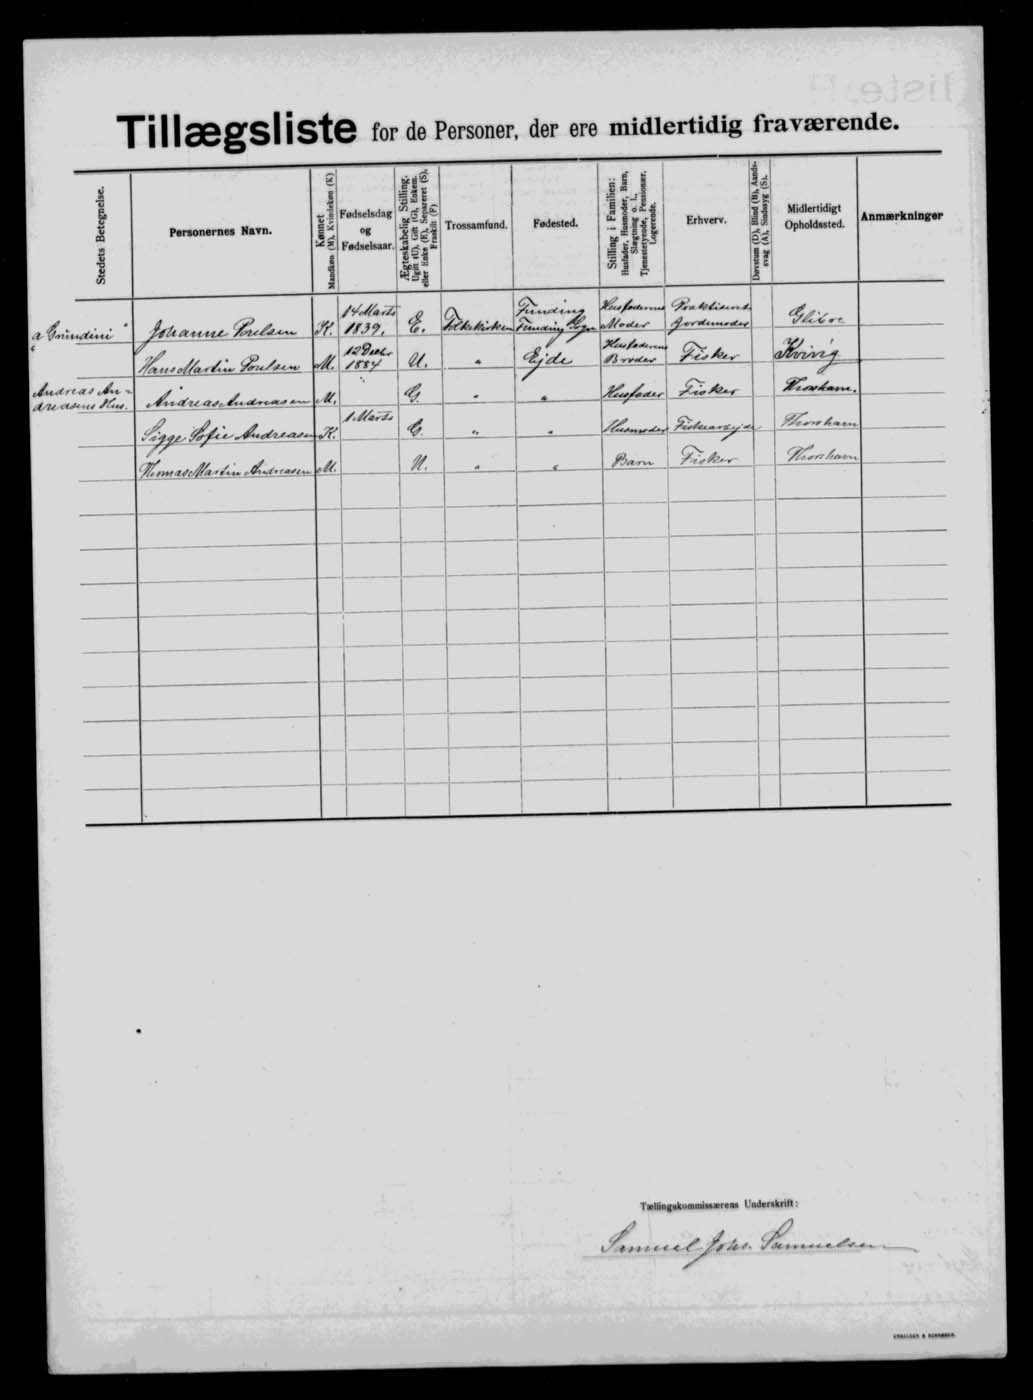 Tillægsliste for de Personer, der ere midlertidig fraværende.
Stedets Betegnelse.
Personernes Navn.
Kønnet
Mandkøn (M), Kvindekøn (K)
Fødselsdag
og
Fødselsaar.
Ægteskabelig Stilling.
Ugift (U), Gift (G), Enkem.
eller Enke (E), Separeret (S),
Fraskilt (F)
Trossamfund.
Fødested.
Stilling i Familien:
Husfader, Husmoder, Barn,
Slægtning o. l.,
Tjenestetyende, Pensionær,
Logerende.
Erhverv.
Døvstum (D), Blind (B), Aands-
svag (A), Sindssyg (S).
Midlertidigt
Opholdssted.
Anmærkninger
14 Marts Funding Husfaderens Praktiserende
a Grundini " Johanne Poulsen K. 1839. E. Folkekirken Funding Sogn Moder Jordemoder
12 Decbr Husfaderens
" Hans Martin Poulsen M. 1884 U. " Ejde Broder Fisker Kvivig
Andreas An-
dreasens Hus. Andreas Andreasen M. " G. " " Husfader Fisker Thorshavn.
1 Marts
Sigge Sofie Andreasen K. G. " " Husmoder Fiskearbejde Thorshavn
Thomas Martin Andreasen M. U. " " Barn Fisker Thorshavn
Tællingskommissærens Underskrift:
Samuel Johs. Samuelsen